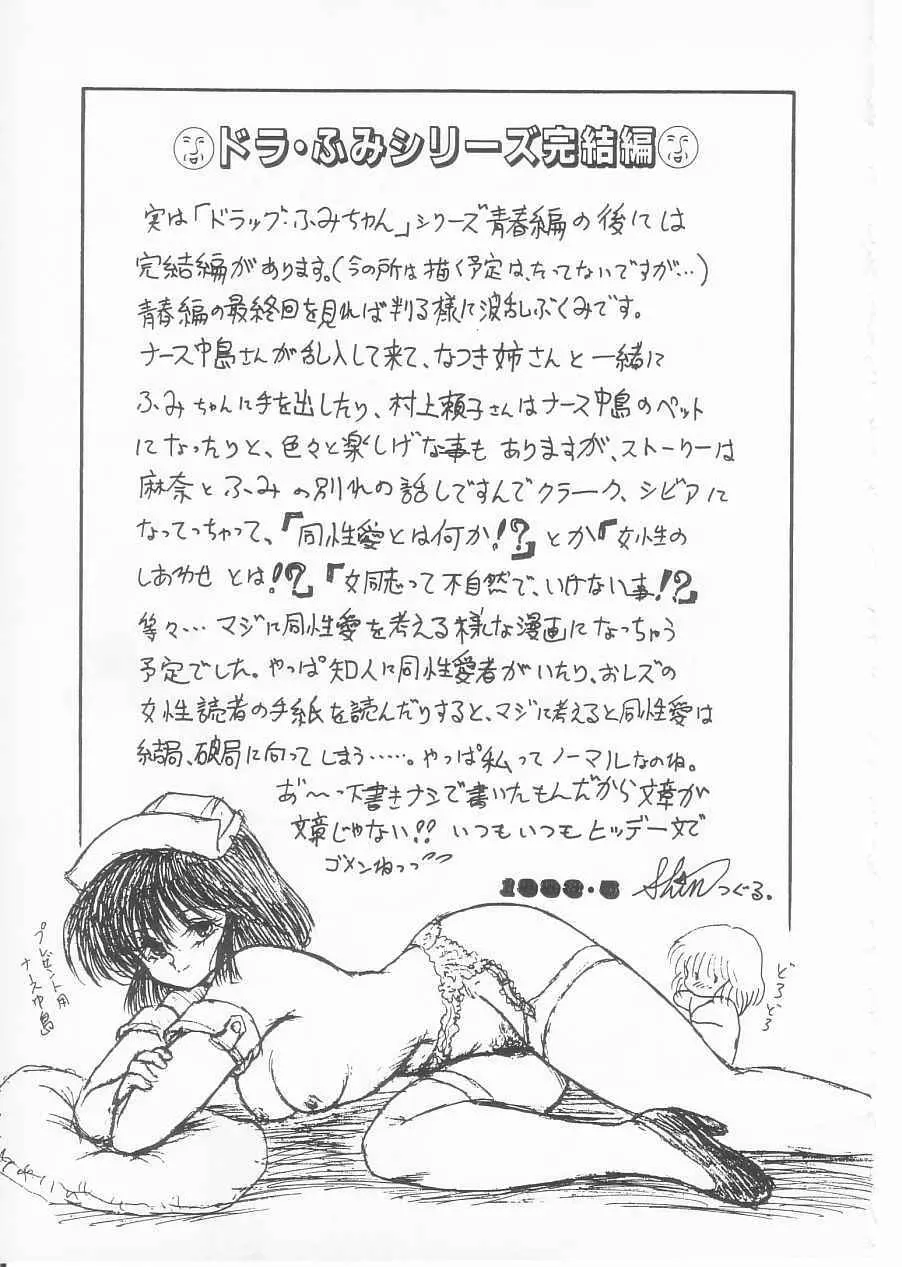 ドラ・ふみシリーズ完結編
実は「ドラッグ・ふみちゃん」シリーズ青春編の後には
完結編があります。(今の所は描く予定は、たってないですが…)
青春編の最終回を見れば判る様に波乱ぶくみです。
ナース中島さんが乱入して来て、なつき姉さんと一緒に
ふみちゃんに手を出したり、村上頼子さんはナース中島のペット
になったりと、色々と楽しげな事もありますが、ストーリーは
麻奈とふみの別れの話しですんでクラーク、シビアに
なってっちゃって、『同性愛とは何か!?』とか『女性の
しあわせとは!?』『女同志って不自然で、いけない事!?』
等々…マジに同性愛を考える様な漫画になっちゃう
予定でした。やっぱ知人に同性愛者がいたり、おレズの
女性読者の手紙を読んだりすると、マジに考えると同性愛は
結局、破局に向ってしまう……。やっぱ私ってノーマルなのね。
あ゛〜っ下書きナシで書いたもんだから文章が
文章じゃない!!いつもいつもヒッデー文で
ゴメンねっっ
つぐる。
プレゼント用
ナース中島
どろどろ